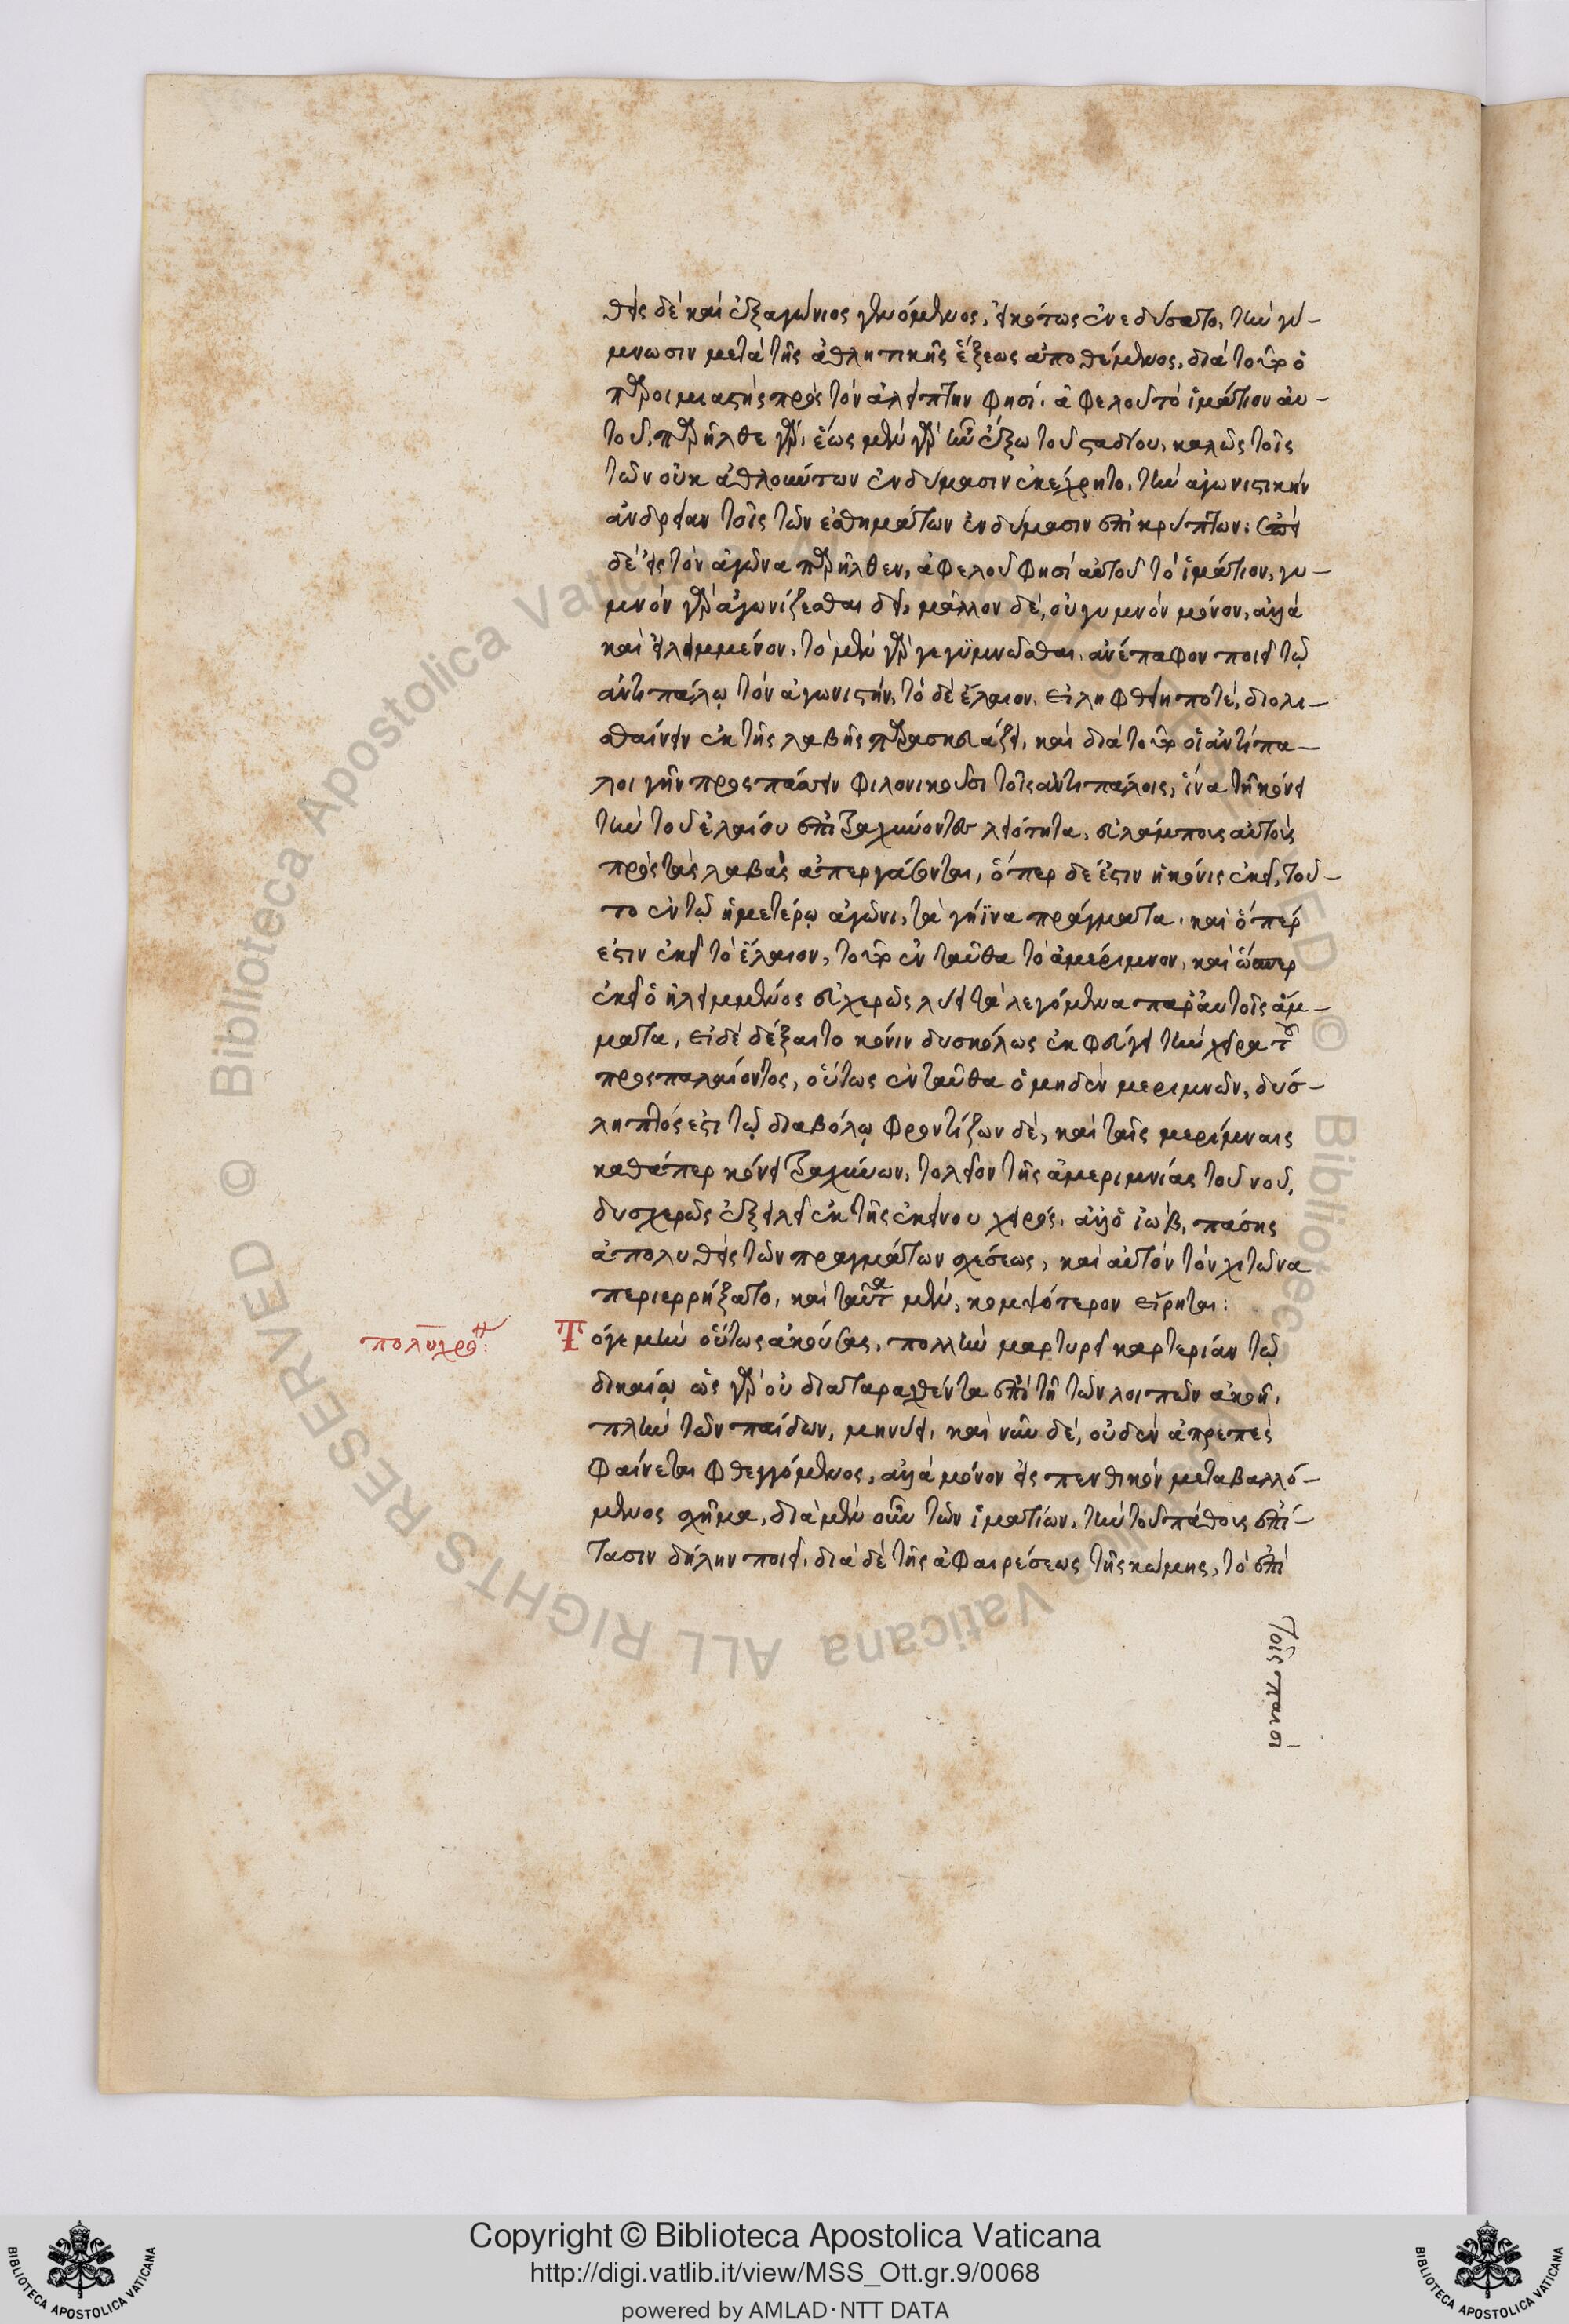 θεὶς δὲ καὶ ἐξαγώνιος γενόμενος, εἰκότως ἐνεδύσατο, τὴν γύ-
μνωσιν μετὰ τῆς ἀθλητικῆς ἕξεως ἀποθέμενος, διὰ τοῦτο ὁ
παροιμιαστὴς πρὸς τὸν ἀλείπτην φησί. ἀφελοῦ τὸ ἱμάτιον αὐ-
τοῦ, παρῆλθε γάρ, ἕως μὲν γὰρ ἦν ἔξω τοῦ σταδίου, καλῶς τοῖς
τῶν οὐκ ἀθλούντων ἐνδύμασιν ἐκέχρητο, τὴν ἀγωνιστικὴν
ἀνδρείαν τοῖς τῶν ἐσθημάτων ἐνδύμασιν ἐπικρύπτων: ἐπεὶ
δὲ εἰς τὸν ἀγῶνα παρῆλθεν, ἀφελοῦ φησὶ αὐτοῦ τὸ ἱμάτιον, γυ-
μνὸν γὰρ ἀγωνίζεσθαι δεῖ, μᾶλλον δὲ, οὐ γυμνὸν μόνον, ἀλλὰ
καὶ ἀλειμμένον, τὸ μὲν γὰρ γεγυμνῶσθαι, ἀνέπαφον ποιεῖ τῷ
ἀντιπάλῳ τὸν ἀγωνιστήν, τὸ δὲ ἔλαιον, εἰ ληφθείη ποτέ, διολι-
σθαίνειν ἐκ τῆς λαβῆς παρασκευάζει, καὶ διὰ τοῦτο οἱ ἀντίπα-
λοι γῆν προσπάσσειν φιλονικοῦσι τοῖς ἀντιπάλοις, ἵνα τῇ κόνει
τὴν τοῦ ἐλαίου ἐπιτραχύνοντες λειότητα, εὐλήπτους αὐτοὺς
πρὸς τὰς λαβὰς ἀπεργάσωνται, ὅπερ δέ ἐστιν ἡ κόνις ἐκεῖ, τοῦ-
το ἐν τῷ ἡμετέρῳ ἀγῶνι, τὰ γήϊνα πράγματα. καὶ ὅπερ
ἐστιν ἐκεῖ τὸ ἔλαιον, τοῦτο ἐνταῦθα τὸ ἀμέριμνον, καὶ ὥσπερ
ἐκεῖ ὁ ἠλειμμένος εὐχερῶς λύει τὰ λεγόμενα παρ' αὐτοῖς ἅμ-
ματα, εἰ δὲ δέξαιτο κόνιν δυσκόλως ἐκφεύγει τὴν χεῖρα τοῦ
προσπαλαίοντος, οὕτως ἐνταῦθα ὁ μηδὲν μεριμνῶν, δύσ-
ληπτός ἐστι τῷ διαβόλῳ φροντίζων δὲ, καὶ ταῖς μερίμναις
καθάπερ κόνει τραχύνων, τὸ λεῖον τῆς ἀμεριμνίας τοῦ νοῦ,
δυσχερῶς ἐξειλεῖ ἐκ τῆς ἐκείνου χειρός. ἀλλ' ὁ ἰὼβ, πάσης
ἀπολυθεὶς τῶν πραγμάτων σχέσεως, καὶ αὐτὸν τὸν χιτῶνα
περιερρήξατο, καὶ ταῦτα μὲν, κομψότερον εἴρηται:
πολυχρο:
Τό γε μὴν οὕτως ἀκούσας, πολλὴν μαρτυρεῖ καρτερίαν τῷ
δικαίῳ ὡς γὰρ οὐ διαταραχθέντα ἐπὶ τῇ τῶν λοιπῶν ἀκοῇ,
πλὴν τῶν παίδων, μηνύει, καὶ νῦν δὲ, οὐδὲν ἀπρεπὲς
φαίνεται φθεγγόμενος, ἀλλὰ μόνον εἰς πενθικὸν μεταβαλλό-
μενος σχῆμα, διὰ μὲν οὖν τῶν ἱματίων, τὴν τοῦ πάθους ἐπί-
τασιν δήλην ποιεῖ, διὰ δὲ τῆς ἀφαιρέσεως τῆς κώμης, τὸ ἐπὶ
τοῖς παισὶ
Copyright © Biblioteca Apostolica Vaticana
http://digi.vatlib.it/view/MSS_Ott.gr.9/0068
powered by AMLAD·NTT DATA
BIBLIOTECA APOSTOLICA VATICANA
BIBLIOTECA APOSTOLICA VATICANA